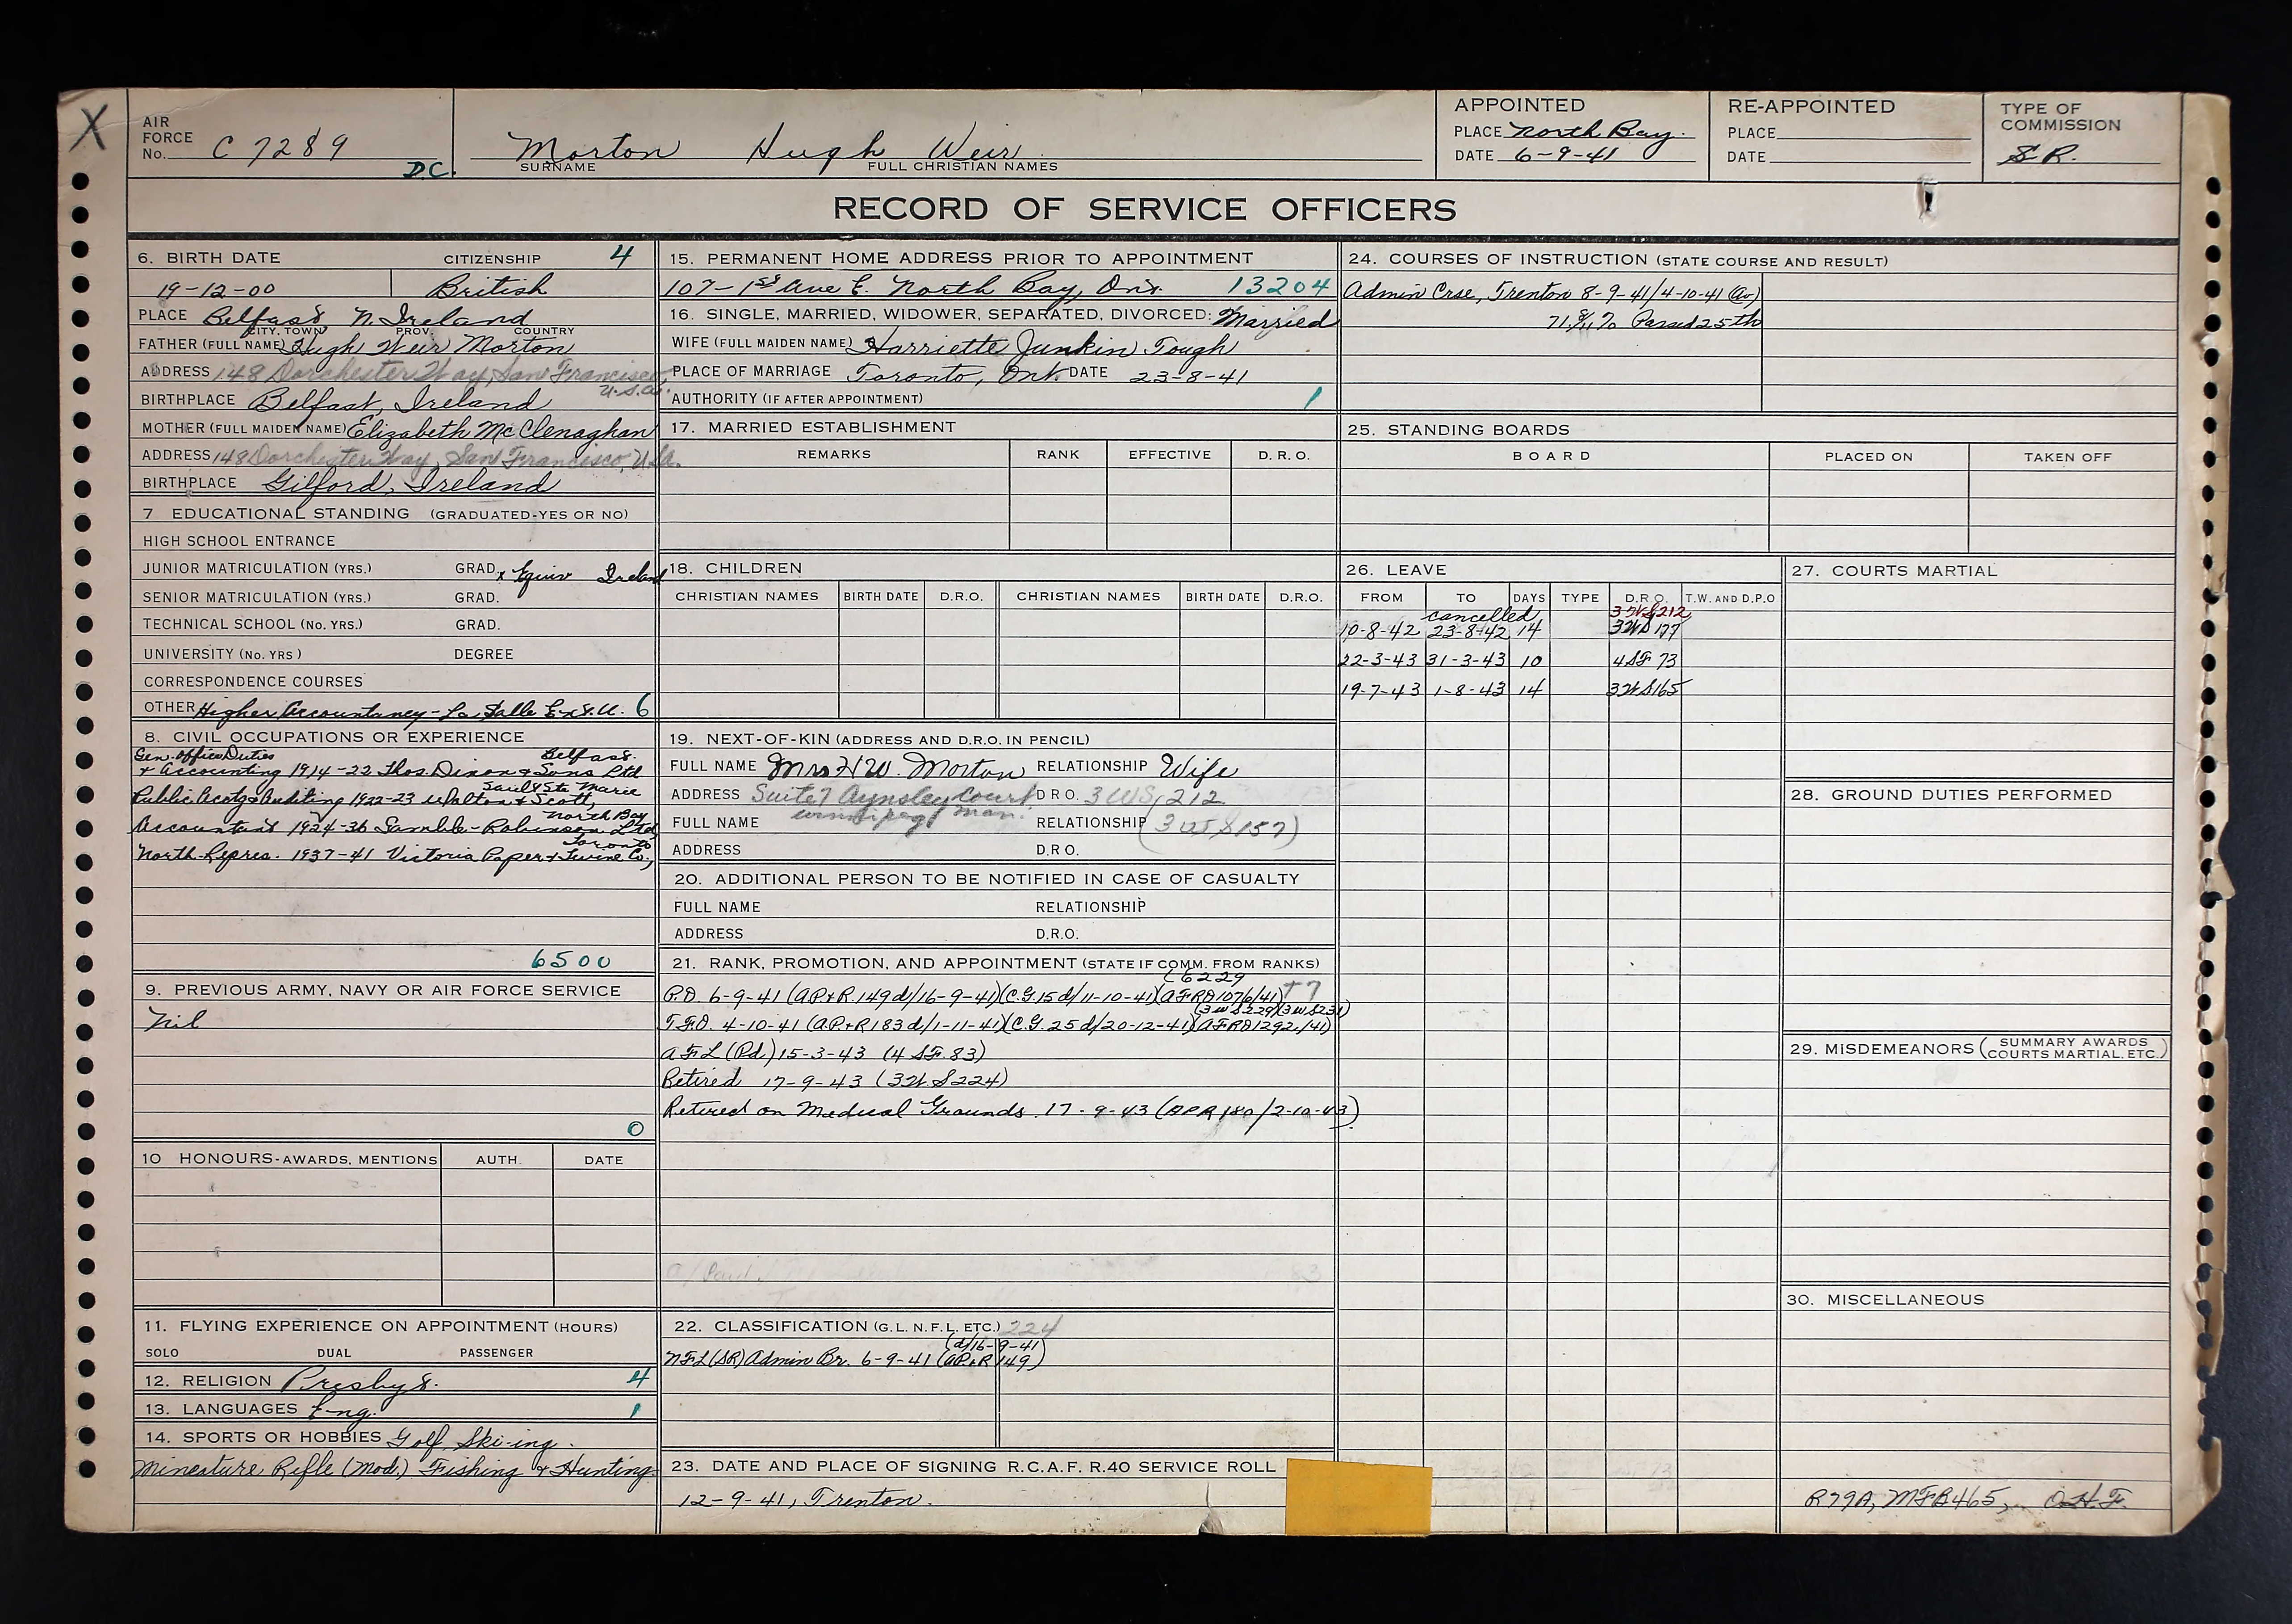 X
AIR FORCE No. C7289 D.C.
Morton Hugh Weir
SURNAME FULL CHRISTIAN NAMES
APPOINTED
PLACE North Bay.
DATE 6-9-41
RE-APPOINTED
PLACE
DATE
TYPE OF COMMISSION
S.R.
RECORD OF SERVICE OFFICERS
6. BIRTH DATE CITIZENSHIP 4
19-12-00 British
PLACE Belfast N. Ireland
CITY, TOWN PROV. COUNTRY
FATHER (FULL NAME) Hugh Weir Morton
ADDRESS 148 Dorchester Way, San Francisco, U.S.A.
BIRTHPLACE Belfast, Ireland
MOTHER (FULL MAIDEN NAME) Elizabeth McClenaghan
ADDRESS 148 Dorchester Way, San Francisco, U.S.A.
BIRTHPLACE Gilford, Ireland
7 EDUCATIONAL STANDING (GRADUATED-YES OR NO)
HIGH SCHOOL ENTRANCE
JUNIOR MATRICULATION (YRS.) GRAD. x Equiv Ireland
SENIOR MATRICULATION (YRS.) GRAD.
TECHNICAL SCHOOL (No. YRS.) GRAD.
UNIVERSITY (No. YRS) DEGREE
CORRESPONDENCE COURSES
OTHER Higher Accountancy - La Salle Ext. U. 6
8. CIVIL OCCUPATIONS OR EXPERIENCE
Gen. Office Duties Belfast.
+ Accounting 1914-22 Thos. Dixon & Sons Ltd
Sault Ste Marie
Public Acctg & Auditing 1922-23 Walton & Scott,
North Bay
Accountant 1924-36 Sample-Robinson Ltd
Toronto
North. Repres. 1937-41 Victoria Paper & Twine Co.,
6500
9. PREVIOUS ARMY, NAVY OR AIR FORCE SERVICE
Nil
0
10 HONOURS-AWARDS, MENTIONS AUTH. DATE
11. FLYING EXPERIENCE ON APPOINTMENT (HOURS)
SOLO DUAL PASSENGER
12. RELIGION Presbyt. 4
13. LANGUAGES Eng. 1
14. SPORTS OR HOBBIES Golf, Ski-ing.
Mineature Rifle (Mod.) Fishing & Hunting.
15. PERMANENT HOME ADDRESS PRIOR TO APPOINTMENT
107-1st Ave E. North Bay, Ont. 13204
16. SINGLE, MARRIED, WIDOWER, SEPARATED, DIVORCED: Married
WIFE (FULL MAIDEN NAME) Harriette Junkin Tough
PLACE OF MARRIAGE Toronto, Ont. DATE 23-8-41
AUTHORITY (IF AFTER APPOINTMENT) 1
17. MARRIED ESTABLISHMENT
REMARKS RANK EFFECTIVE D.R.O.
18. CHILDREN
CHRISTIAN NAMES BIRTH DATE D.R.O. CHRISTIAN NAMES BIRTH DATE D.R.O.
19. NEXT-OF-KIN (ADDRESS AND D.R.O. IN PENCIL)
FULL NAME Mrs H.W. Morton RELATIONSHIP Wife
ADDRESS Suite 7 Aynsley Court D.R.O. 3WS, 212
Winnipeg, Man.
FULL NAME RELATIONSHIP (3WS157)
ADDRESS D.R.O.
20. ADDITIONAL PERSON TO BE NOTIFIED IN CASE OF CASUALTY
FULL NAME RELATIONSHIP
ADDRESS D.R.O.
21. RANK, PROMOTION, AND APPOINTMENT (STATE IF COMM. FROM RANKS)
C6229
P.O. 6-9-41 (AP+R.149d/16-9-41)(C.G.15d/11-10-41)(AFRO1076/41) T7
(3WS229)(3WS231)
T.F.O. 4-10-41 (AP+R183d/1-11-41)(C.G.25d/20-12-41)(AFRO1292/41)
A.F.L. (Pd) 15-3-43 (4SF.83)
Retired 17-9-43 (3W.S224)
Retired on Medical Grounds. 17-9-43 (APR180/2-10-43)
22. CLASSIFICATION (G.L. N.F.L. ETC.) 224
(d/16-9-41)
NFL(SR) Admin Br. 6-9-41 (AP+R149)
23. DATE AND PLACE OF SIGNING R.C.A.F. R.40 SERVICE ROLL
12-9-41, Trenton.
24. COURSES OF INSTRUCTION (STATE COURSE AND RESULT)
Admin Crse, Trenton 8-9-41/4-10-41 (Av)
Passed 25th
25. STANDING BOARDS
BOARD PLACED ON TAKEN OFF
26. LEAVE
FROM TO DAYS TYPE D.R.O. T.W. AND D.P.O
cancelled 3WS212
10-8-42 23-8-42 14 3WS177
22-3-43 31-3-43 10 4SF 73
19-7-43 1-8-43 14 3WS165
27. COURTS MARTIAL
28. GROUND DUTIES PERFORMED
29. MISDEMEANORS (SUMMARY AWARDS COURTS MARTIAL, ETC.)
30. MISCELLANEOUS
R79A, MFB465, O.H.F.